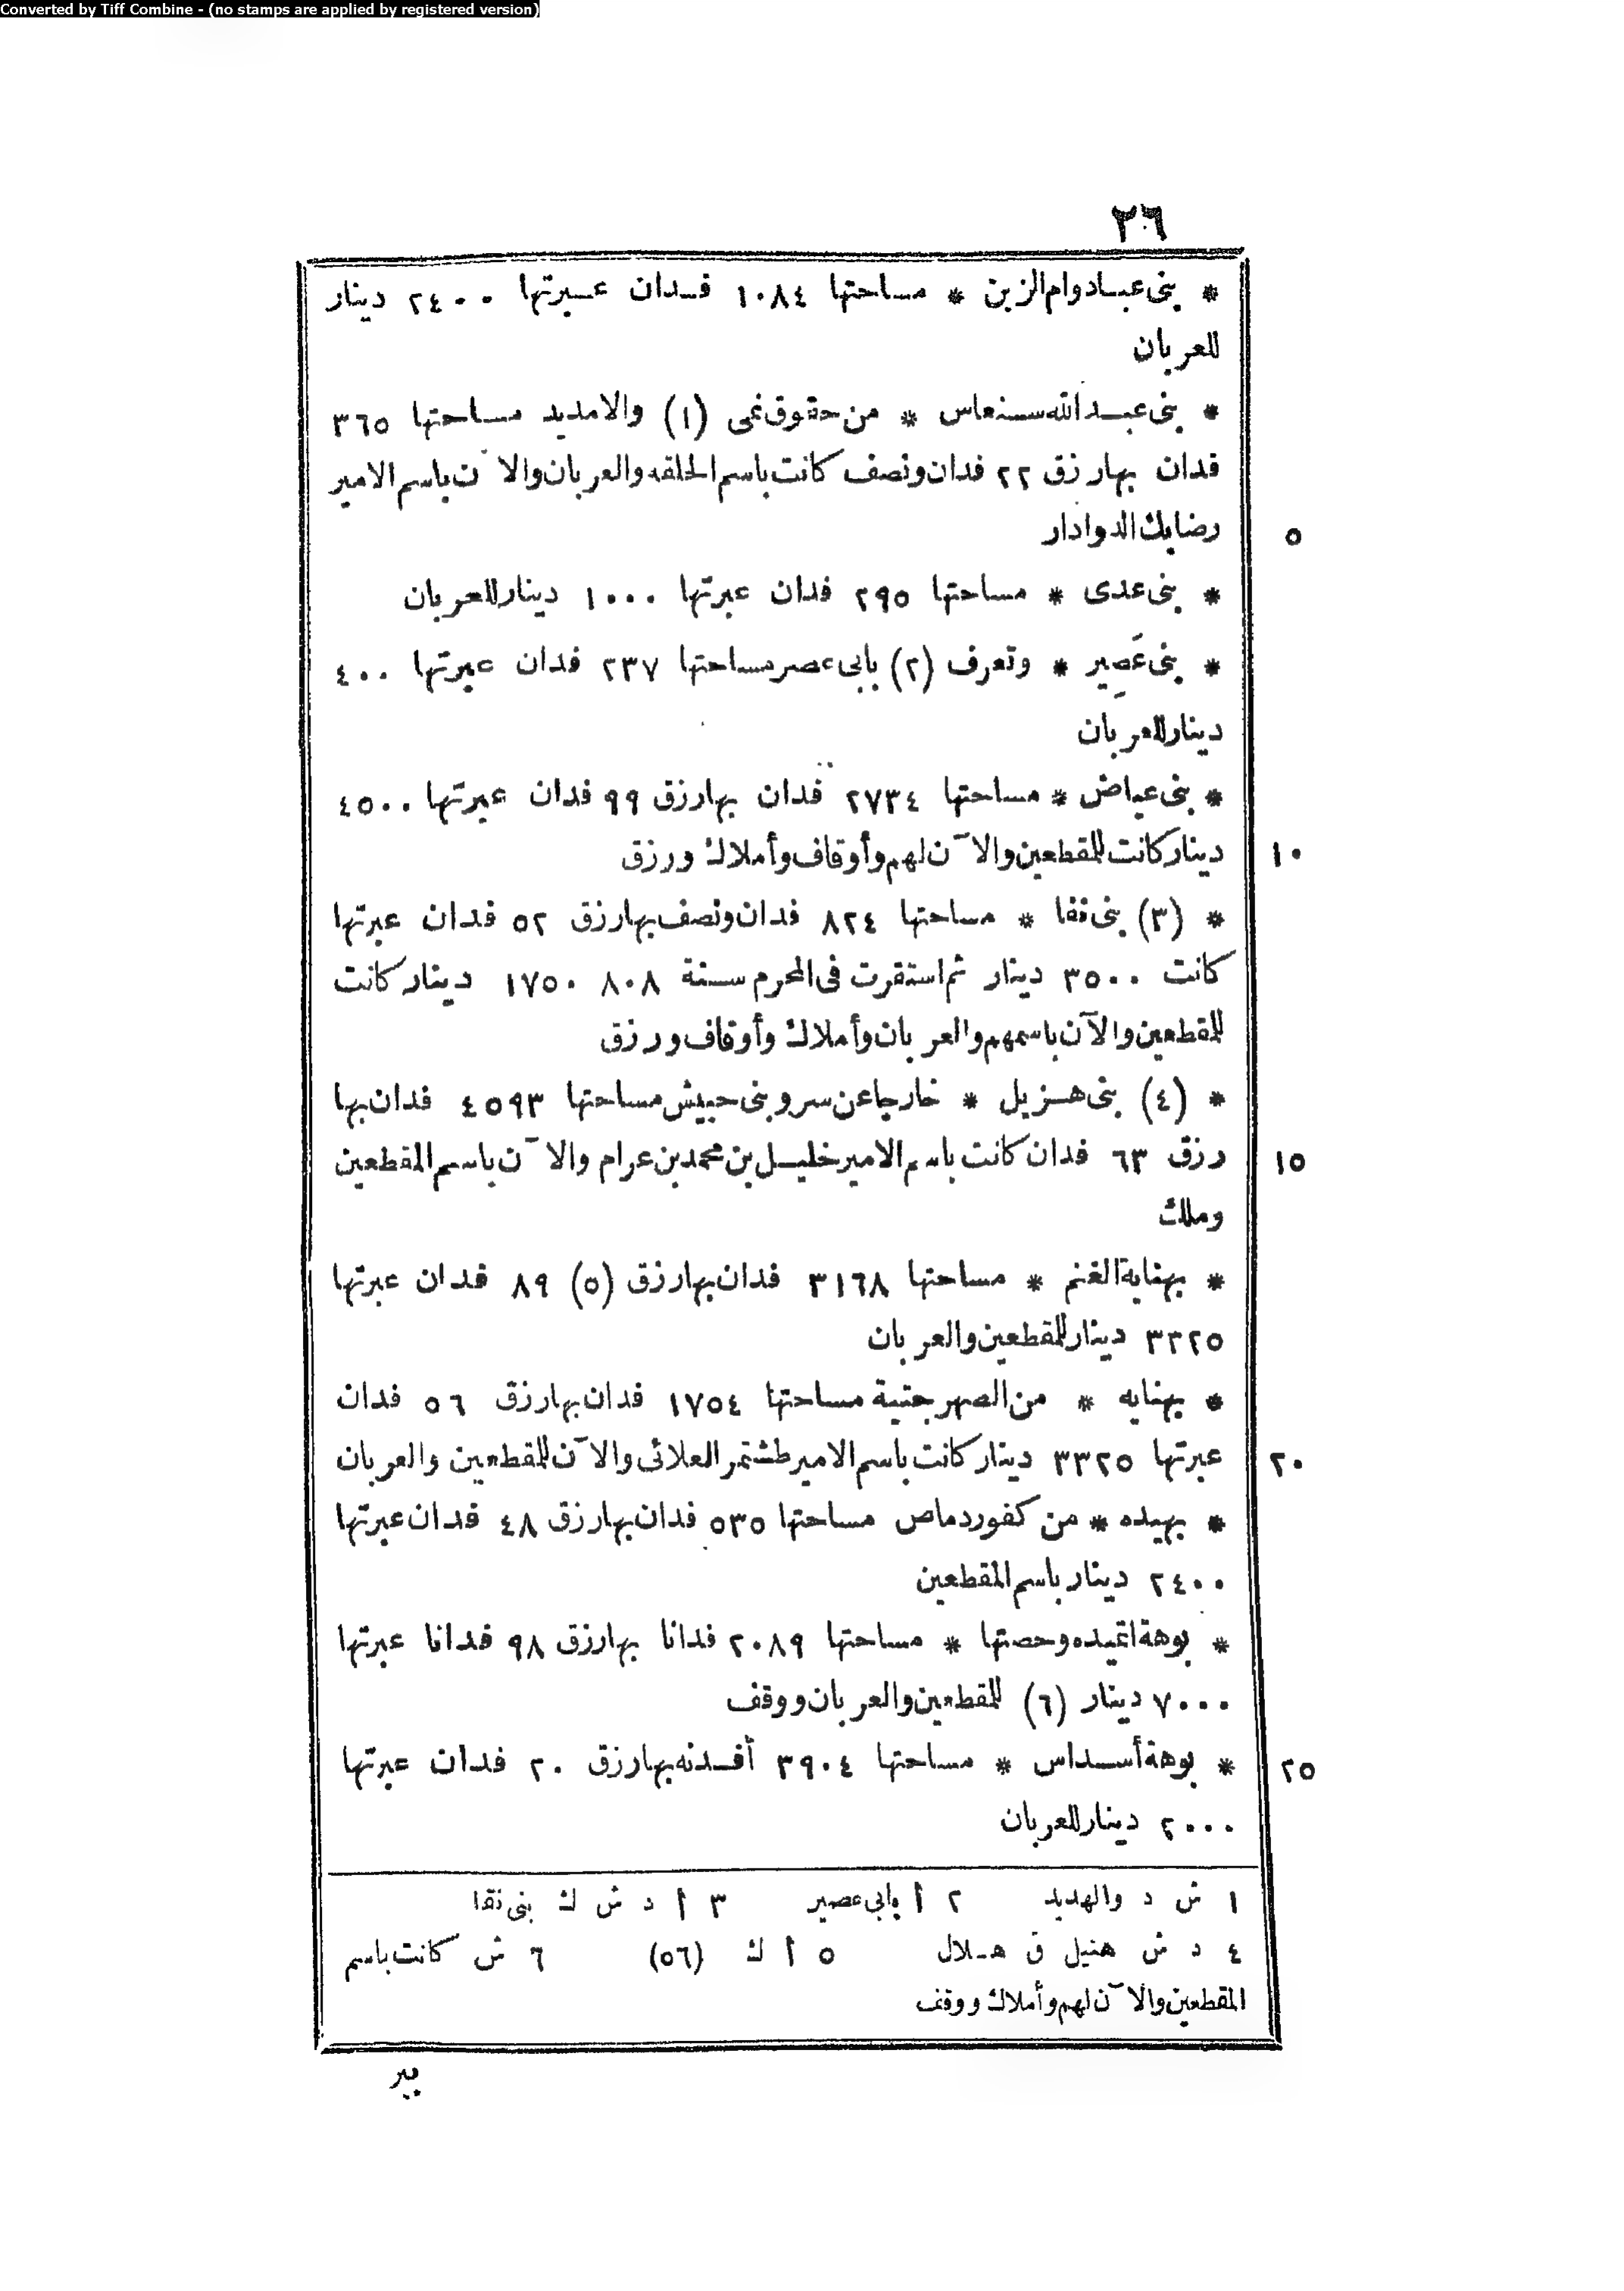 Converted by Tiff Combine - (no stamps are applied by registered version)
٢٦
* بنى عباد وام الزين * مساحتها ١٠٨٤ فدان عبرتها ٢٤٠٠ دينار
للعربان
* بنى عبد الله سنعاس * من حقوق نمى (١) والامديد مساحتها ٣٦٥
فدان بها رزق ٢٢ فدان ونصف كانت باسم الحلقه والعربان والآن باسم الامير
رضا بك الدوادار
٥
* بنى عدى * مساحتها ٢٩٥ فدان عبرتها ١٠٠٠ دينار للعربان
* بنى عَصِير * وتعرف (٢) بابى عصر مساحتها ٢٣٧ فدان عبرتها ٤٠٠
دينار للعربان
* بنى عياض * مساحتها ٢٧٣٤ فدان بها رزق ٩٩ فدان عبرتها ٤٥٠٠
دينار كانت للمقطعين والآن لهم وأوقاف وأملاك ورزق
١٠
* (٣) بنى نفا * مساحتها ٨٢٤ فدان ونصف بها رزق ٥٢ فدان عبرتها
كانت ٣٥٠٠ دينار ثم استقرت فى المحرم سنة ٨٠٨ ١٧٥٠ دينار كانت
للمقطعين والآن باسمهم والعربان وأملاك وأوقاف ورزق
* (٤) بنى هزيل * خارجا عن سرو بنى حبيش مساحتها ٤٥٩٣ فدان بها
رزق ٦٣ فدان كانت باسم الامير خليل بن محمد بن عرام والآن باسم المقطعين
١٥
وملك
* بهناية الغنم * مساحتها ٣١٦٨ فدان بها رزق (٥) ٨٩ فدان عبرتها
٣٣٢٥ دينار للمقطعين والعربان
* بهنايه * من الصهرجتية مساحتها ١٧٥٤ فدان بها رزق ٥٦ فدان
عبرتها ٣٣٢٥ دينار كانت باسم الامير طشتمر العلائى والآن للمقطعين والعربان
٢٠
* بهيده * من كفور دماص مساحتها ٥٣٥ فدان بها رزق ٤٨ فدان عبرتها
٢٤٠٠ دينار باسم المقطعين
* بوهة اتميده وحصتها * مساحتها ٢٠٨٩ فدانا بها رزق ٩٨ فدانا عبرتها
٧٠٠٠ دينار (٦) للمقطعين والعربان ووقف
* بوهة أسداس * مساحتها ٣٩٠٤ أفدنه بها رزق ٢٠ فدان عبرتها
٢٥
٢٠٠٠ دينار للعربان
١ ش د والهديد ٢ أ بابى عصير ٣ أ د ش ك بنى نقا
٤ د ش هنيل ق هلال ٥ أ ك (٥٦) ٦ ش كانت باسم
المقطعين والآن لهم وأملاك ووقف
بير